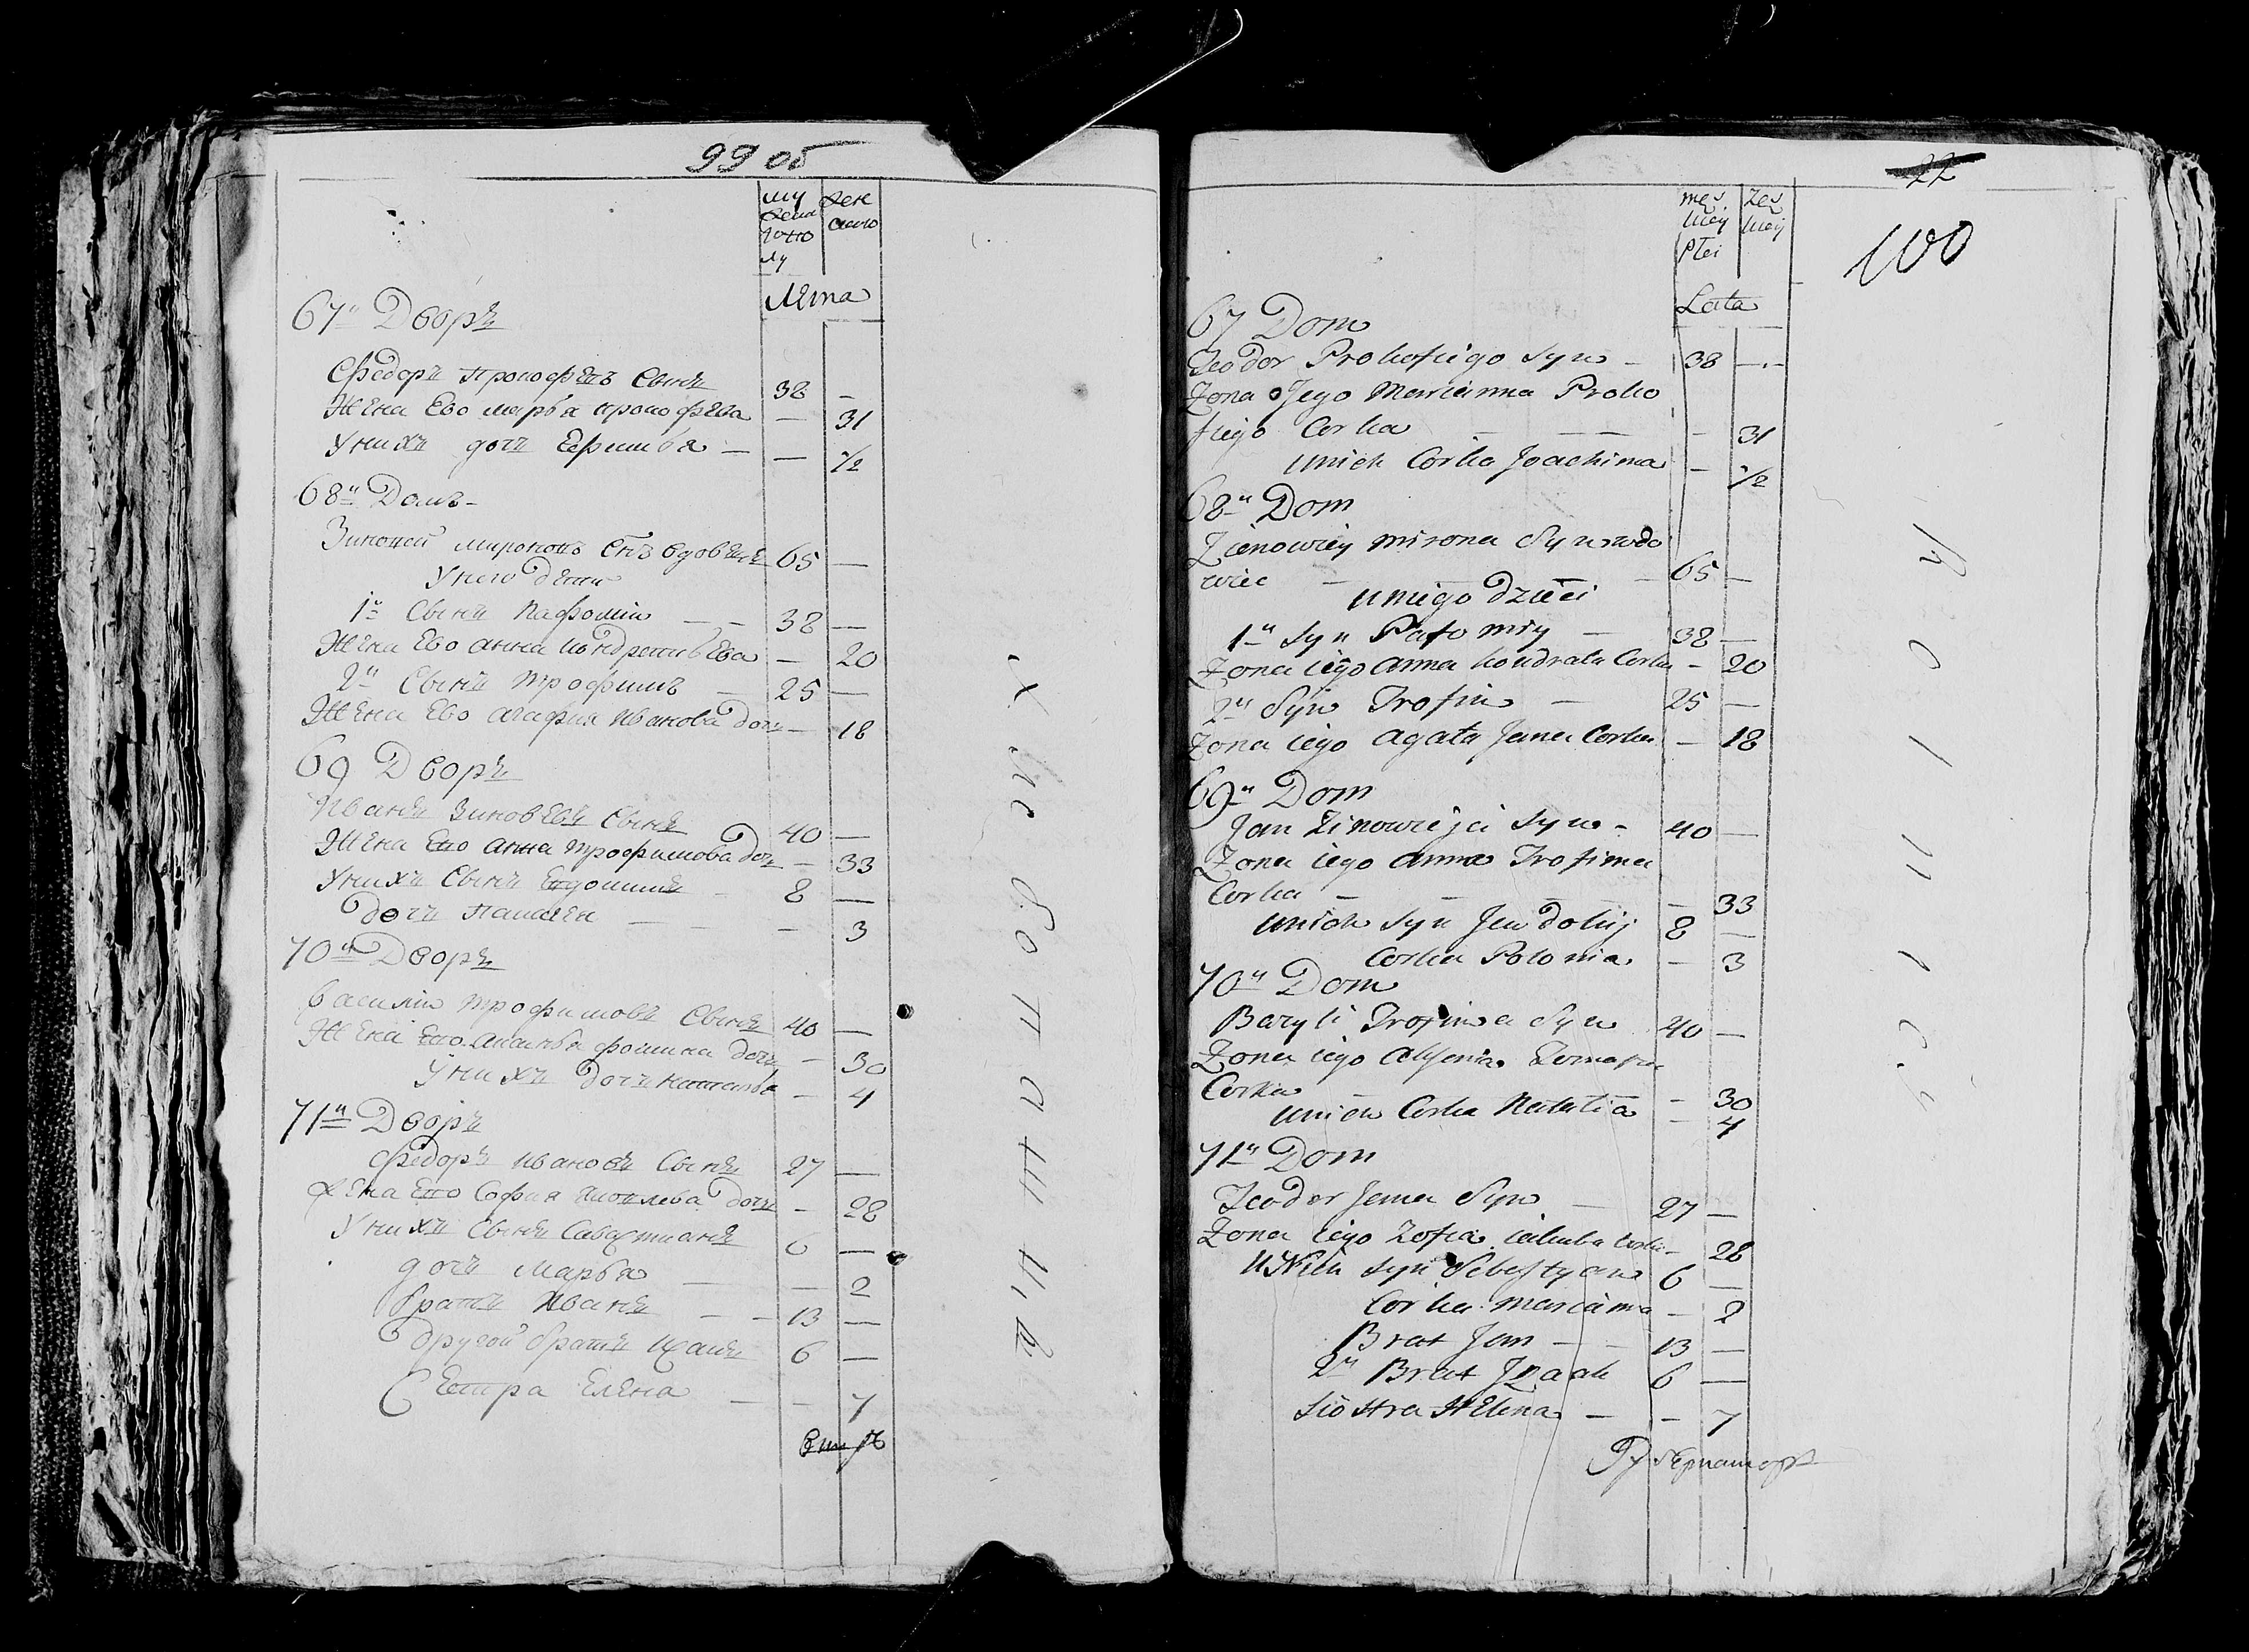 99 об
Лета
67й Дворъ
Федоръ Прокофевъ Сынъ 38 —
Жена Ево Марья Прокофева — 31
У нихъ дочъ Ефимья — — 1/2
68й Домъ
Зиновей Мироновъ Снъ вдовецъ 65 —
У него дети
1й Сынъ Пафомiи — — 38 —
Жена Ево Анна Кондратьева — 20
2й Сынъ Трофимъ — 25 —
Жена Ево Агафия Иванова дочъ — 18
69 Дворъ
Иванъ Зиновьевъ Сынъ 40 —
Жена Ево Анна Трофимова дочъ — 33
У нихъ Сынъ 8 —
дочъ — — 3
70й Дворъ
Василiи Трофимовъ Сынъ 40 —
Жена Ево Фомина дочъ — 30
У нихъ дочъ Наталья — 4
71й Дворъ
Федоръ Ивановъ Сынъ 27 —
Жена Ево София дочъ — 28
У нихъ Сынъ Савастианъ 6 —
дочъ Марья — — 2
братъ Иванъ — — 13 —
другой братъ 6 —
Сестра Елена — — 7
22
100
Lata
67 Dom
Teodor Prokofiego Syn — 38 —
Zona Jego Marianna Proko
fiego Corka — — — 31
unich Corka Joachima — 1/2
68й Dom
Zienowiey Mirona Syn wdo
wiec — — 65 —
uniego dzieci
1й Syn Pafomiy — 38 —
Zona iego Anna Kondrata Corka — 20
2й Syn Trofim — 25 —
Zona iego Agata Jana Corka — 18
69й Dom
Jan Zinowieja Syn — 40 —
Zona iego Anna Trofima
Corka — — — 33
unich Syn Jewdokij 8 —
Corka Polonia — 3
70й Dom
Bazyli Trofima Syn 40 —
Zona iego Tomasza
Corka — — 30
unich Corka Natalia — 4
71й Dom
Teodor Jana Syn — 27 —
Zona iego Zofia iakuba Corka — 28
unich Syn Sebestyan 6 —
Corka Marianna — 2
Brat Jan — — 13 —
2й Brat Izaak 6 —
Siostra Helena — — 7